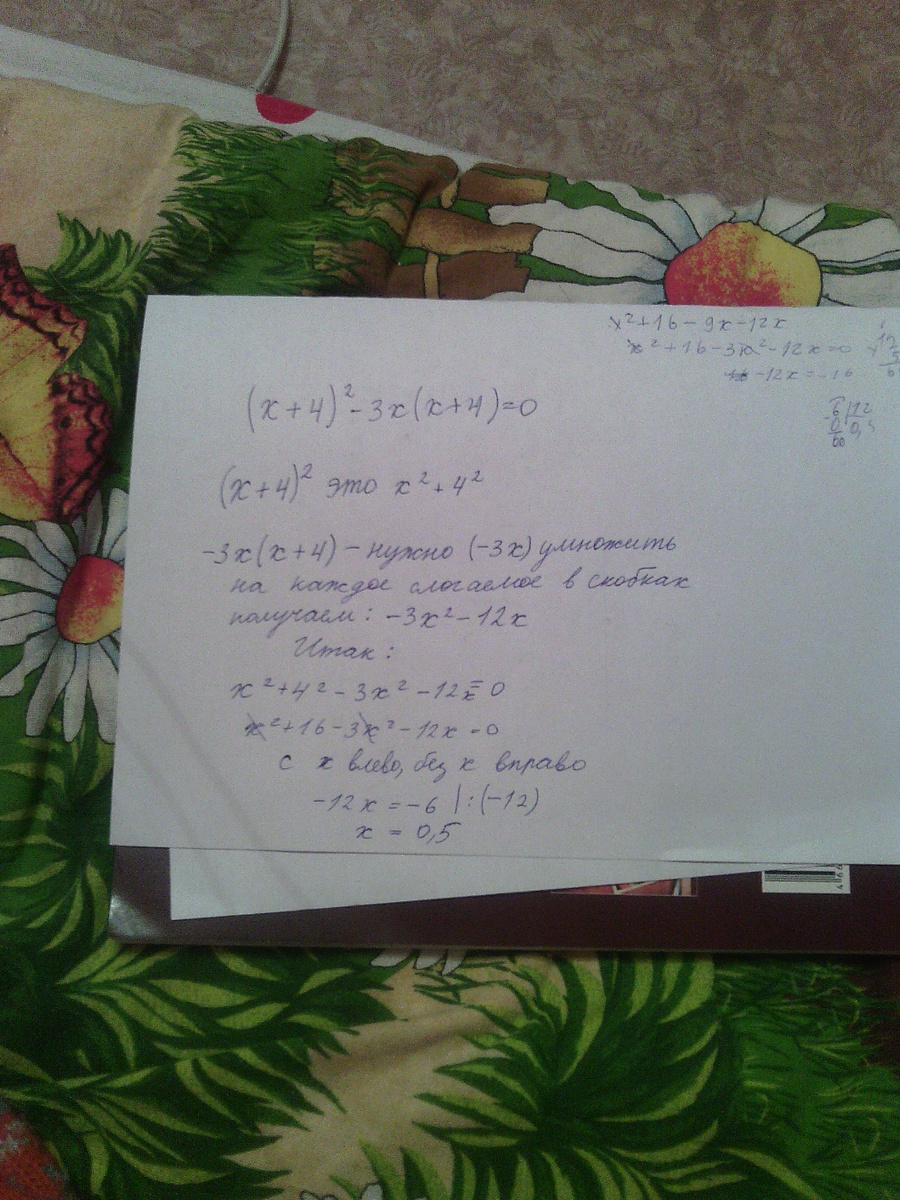 x²+16-9x-12x
x²+16-3x²-12x=0
-12x=-16
(x+4)²-3x(x+4)=0
(x+4)² это x²+4²
-3x(x+4) - нужно (-3x) умножить
на каждое слогаемое в скобках
получаем: -3x²-12x
Итак:
x²+4²-3x²-12x=0
x²+16-3x²-12x=0
с x влево, без x вправо
-12x=-6 |:(-12)
x = 0,5